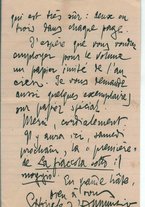 qui est très sûr : deux ou
trois sans chaque page.
J'espère que vous voudrez
employer pour le volume
un papier imité de l'an
cien. Je vous demande
aussi quelques exemplaires
sur papier spécial.
Merci, cordialement
Il y aura ici, samedi
prochain, la "première"
de La fiaccola sotto il
moggio.
En grande hâte,
bien à vous